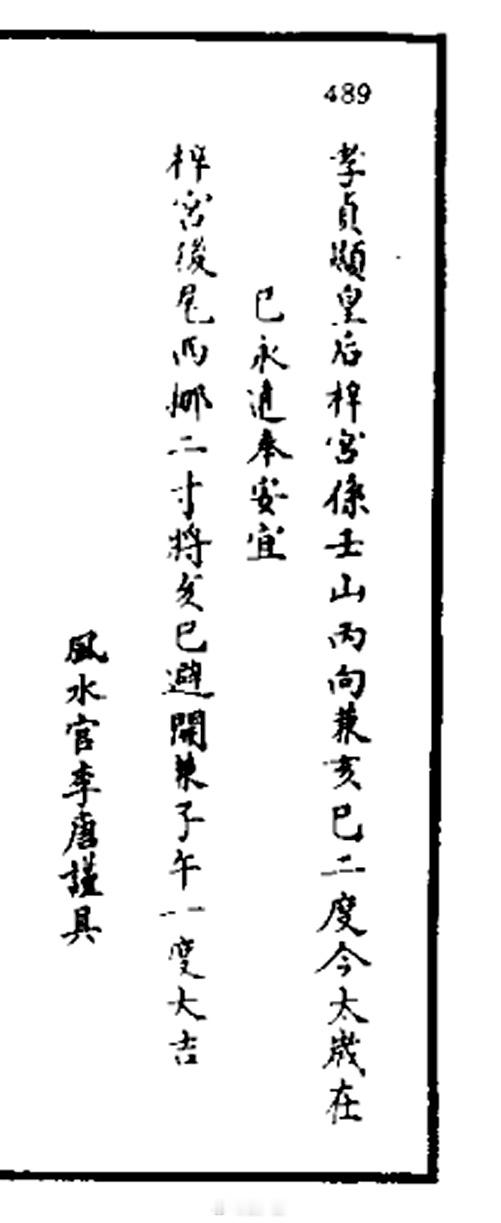 489
孝貞顯皇后梓宮係壬山丙向兼亥巳二度今太歲在
巳永遠奉安宜
梓宮後尾西挪二寸將亥巳避開兼子午一度大吉
風水官李唐謹具